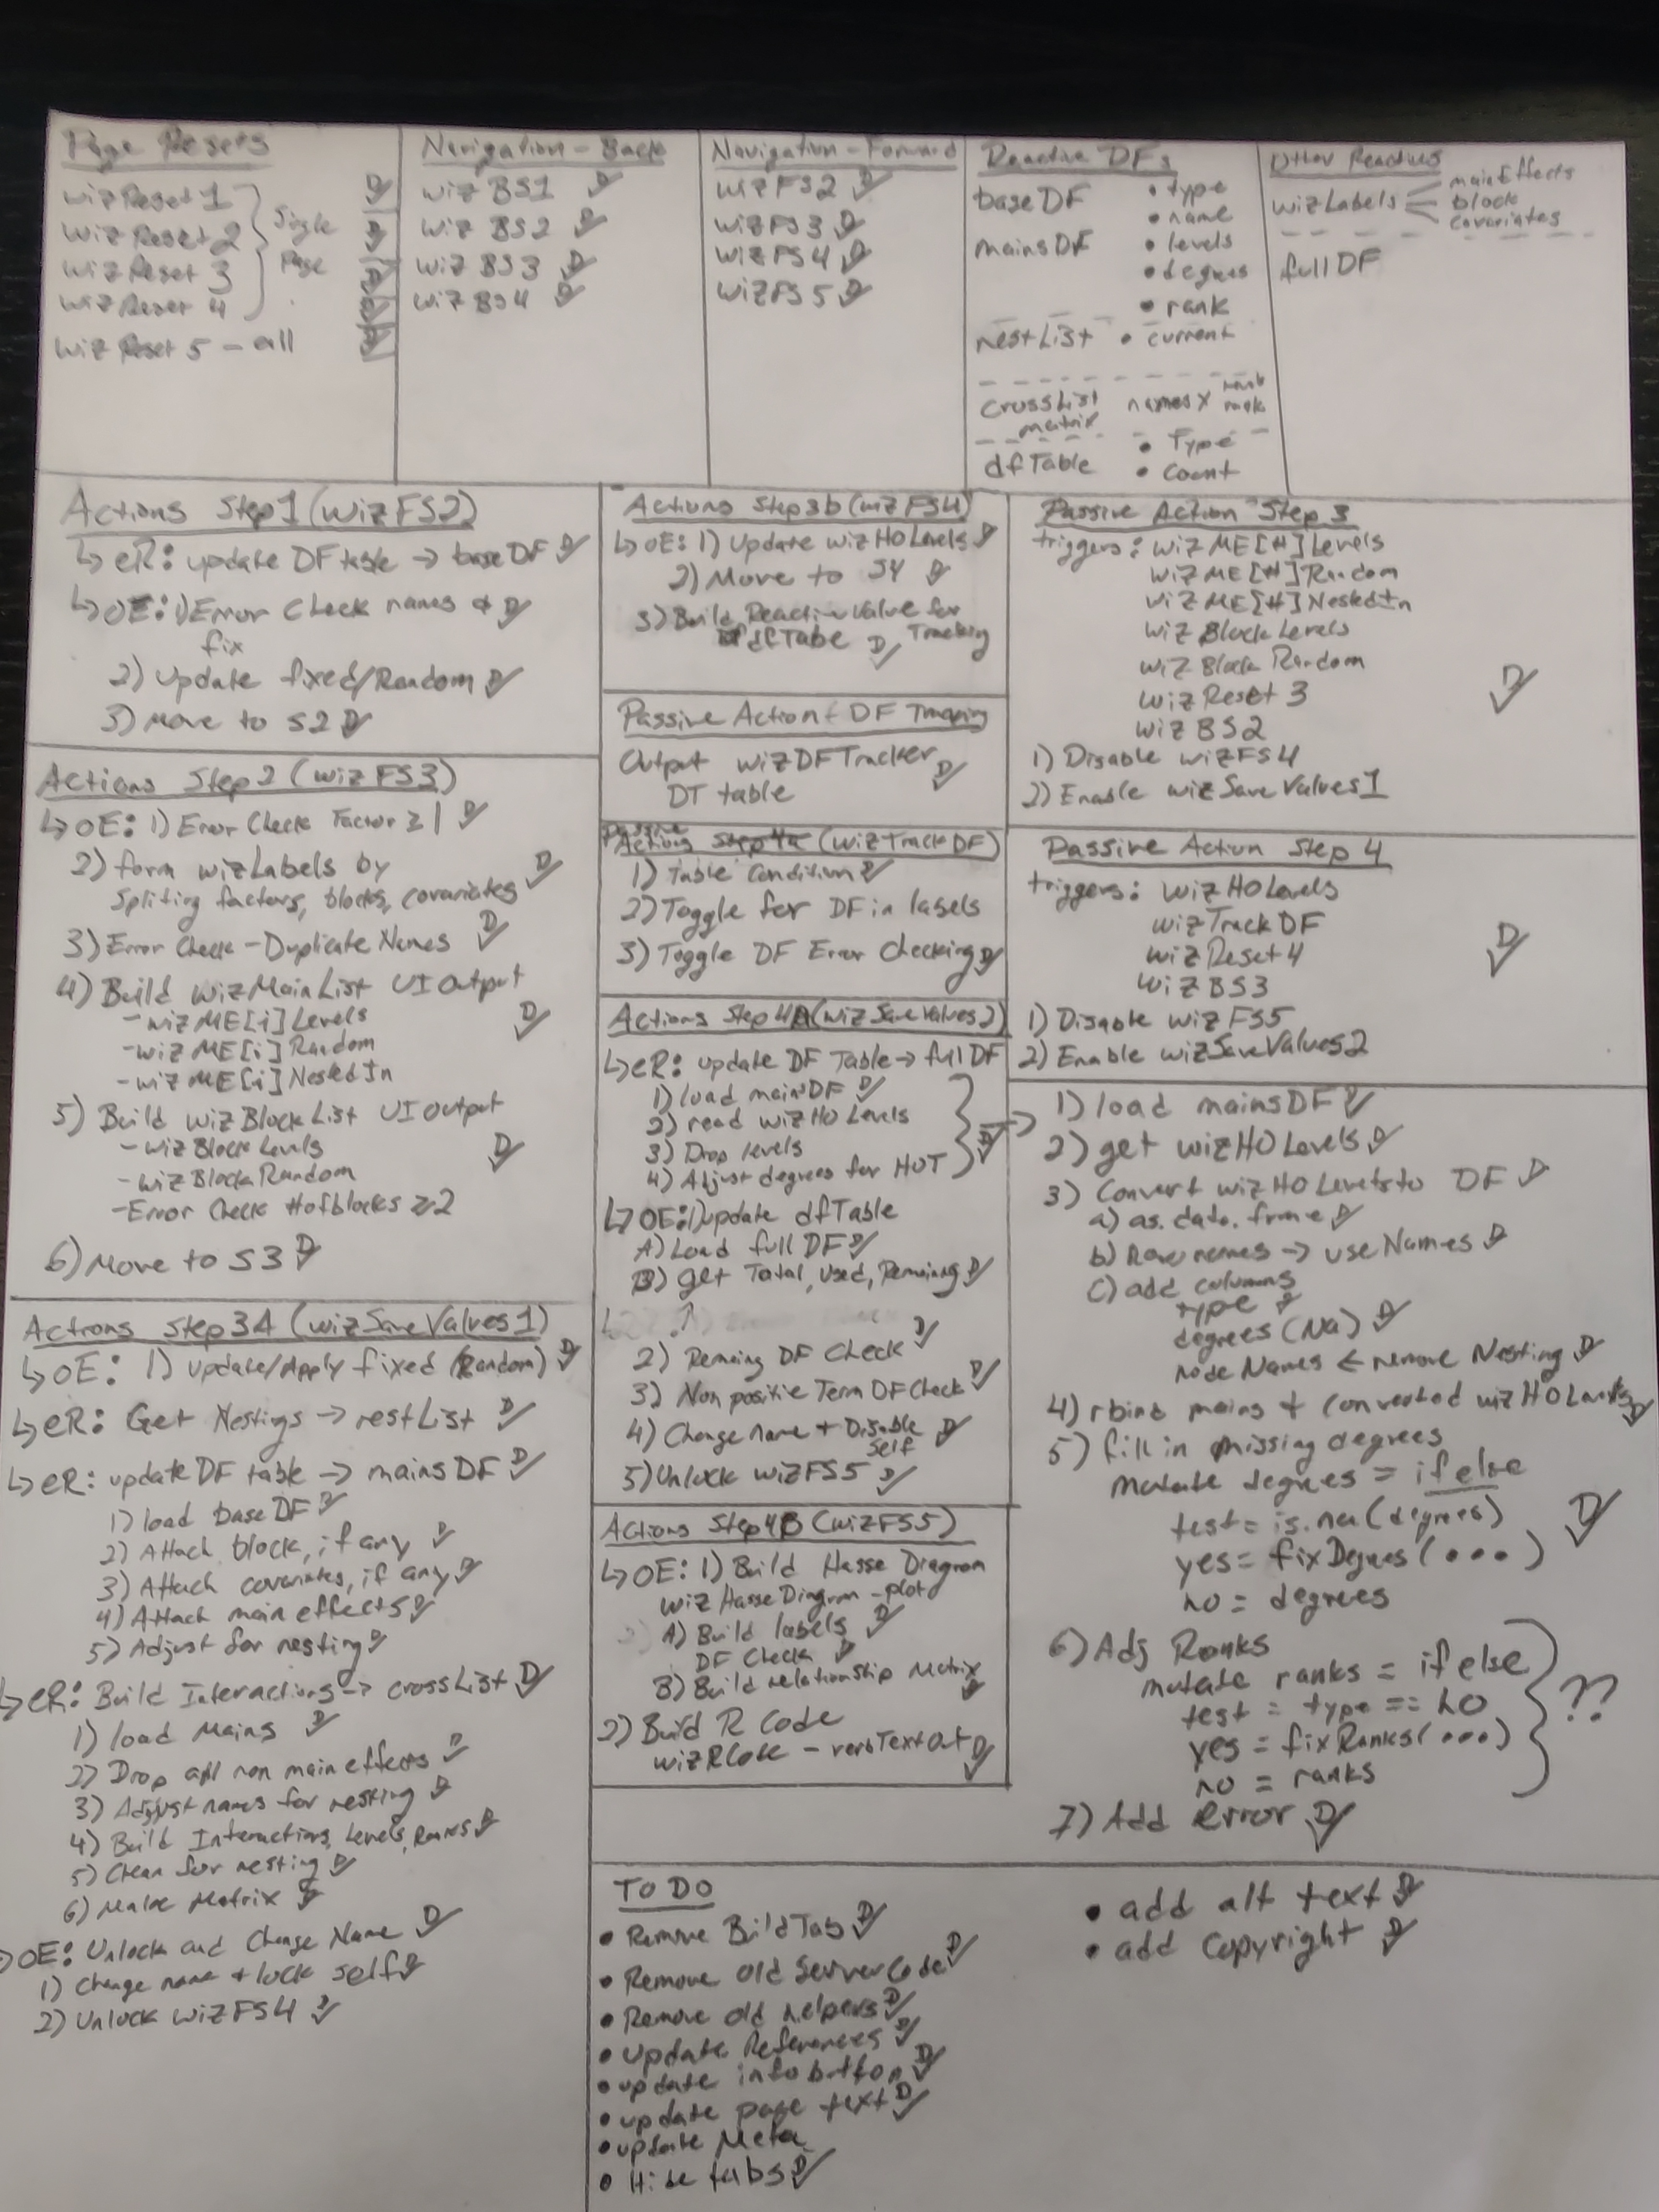 Page Resets
wizReset 1
wiz Reset 2
wiz Reset 3
wiz Reset 4
Single
Page
wiz Reset 5 - all
Navigation - Back
wiz BS1 D
wiz BS2 D
wiz BS3 D
wiz BS4 D
Navigation - Forward
wiz FS2 D
wiz FS3 D
wiz FS4 D
wiz FS5 D
Reactive DFs
baseDF
mainsDF
• type
• name
• levels
• degrees
• rank
nestList • current
crossList matrix names x rank
dfTable • Type
• Count
Other Reactives
wizLabels mainEffects
block
covariates
fullDF
Actions Step1 (wizFS2)
↳ eR: update DF table → baseDF D
↳ OE: 1) Error Check names & D
fix
2) update fixed/Random D
3) Move to S2 D
Actions Step 2 (wizFS3)
↳ OE: 1) Error Check Factor ≥ 1 D
2) form wizLabels by D
Spliting factors, blocks, covariates
3) Error Check - Duplicate Names D
4) Build wizMainList UI Output
- wizME[i] Levels D
- wizME[i] Random
- wizME[i] NestedIn
5) Build wizBlockList UI output
- wizBlockLevels D
- wizBlockRandom
- Error Check #ofblocks ≥ 2
6) Move to S3 D
Actions Step 3A (wizSaveValues1)
↳ OE: 1) update/Apply fixed (Random) D
↳ eR: Get Nestings → nestList D
↳ eR: update DF table → mains DF D
1) load baseDF D
2) Attach block, if any D
3) Attach covariates, if any D
4) Attach main effects D
5) Adjust for nesting D
↳ eR: Build Interactions → crossList D
1) load Mains D
2) Drop all non main effects D
3) Adjust names for nesting D
4) Build Interactions, Levels, Ranks D
5) Clean for nesting D
6) Make Matrix D
OE: Unlock and Change Name D
1) Change name + lock self D
2) Unlock wizFS4 D
Actions Step3b (wizFS4)
↳ OE: 1) Update wizHOLevels D
2) Move to S4 D
3) Build ReactiveValue for
dfTabe D Tracking
Passive Action - DF Tracking
Output wizDFTracker D
DT table
Passive
Actions Step 4a (wizTrackDF)
1) Table Condition D
2) Toggle for DF in labels
3) Toggle DF Error Checking D
Actions Step 4A (wizSaveValues2)
↳ eR: update DF Table → fullDF
1) load mainDF D
2) read wizHO Levels
3) Drop levels D
4) Adjust degrees for HOT
↳ OE: 1) update dfTable
A) Load fullDF D
B) get Total, Used, Remaining D
2) Remaing DF Check D
3) Non positie Term DF Check D
4) Change name + Disable Self D
5) Unlock wizFS5 D
Actions Step 4B (wizFS5)
↳ OE: 1) Build Hasse Diagram
wizHasseDiagram - plot
A) Build labels D
DF Check D
B) Build relationship Matrix D
2) Build R Code
wizRCode - verbTextOut D
Passive Action Step 3
triggers: wizME[#]Levels
wizME[#]Random
wizME[#]NestedIn
wiz Block Levels
wiz Block Random
wiz Reset 3 D
wiz BS2
1) Disable wizFS4
2) Enable wizSaveValues1
Passive Action Step 4
triggers: wizHOLevels
wizTrackDF
wizReset4 D
wiz BS3
1) Disable wizFS5
2) Enable wizSaveValues2
1) load mainsDF D
2) get wizHOLevels D
3) Convert wizHOLevels to DF D
a) as.data.frame D
b) Row names → use Names D
c) add columns
type D
degrees (NA) D
node Names ← remove Nesting D
4) rbind mains + converted wizHOLevels D
5) fill in missing degrees
mutate degrees = ifelse
test = is.na(degrees) D
yes = fixDegrees(...)
no = degrees
6) Adj Ranks
mutate ranks = ifelse
test = type == ho ??
yes = fixRanks(...)
no = ranks
7) Add Error D
TO DO
• Remove BuildTab D
• Remove Old ServerCode D
• Remove old helpers D
• update References D
• update info button D
• update page text D
• update Meta
• Hide tabs D
• add alt text D
• add Copyright D